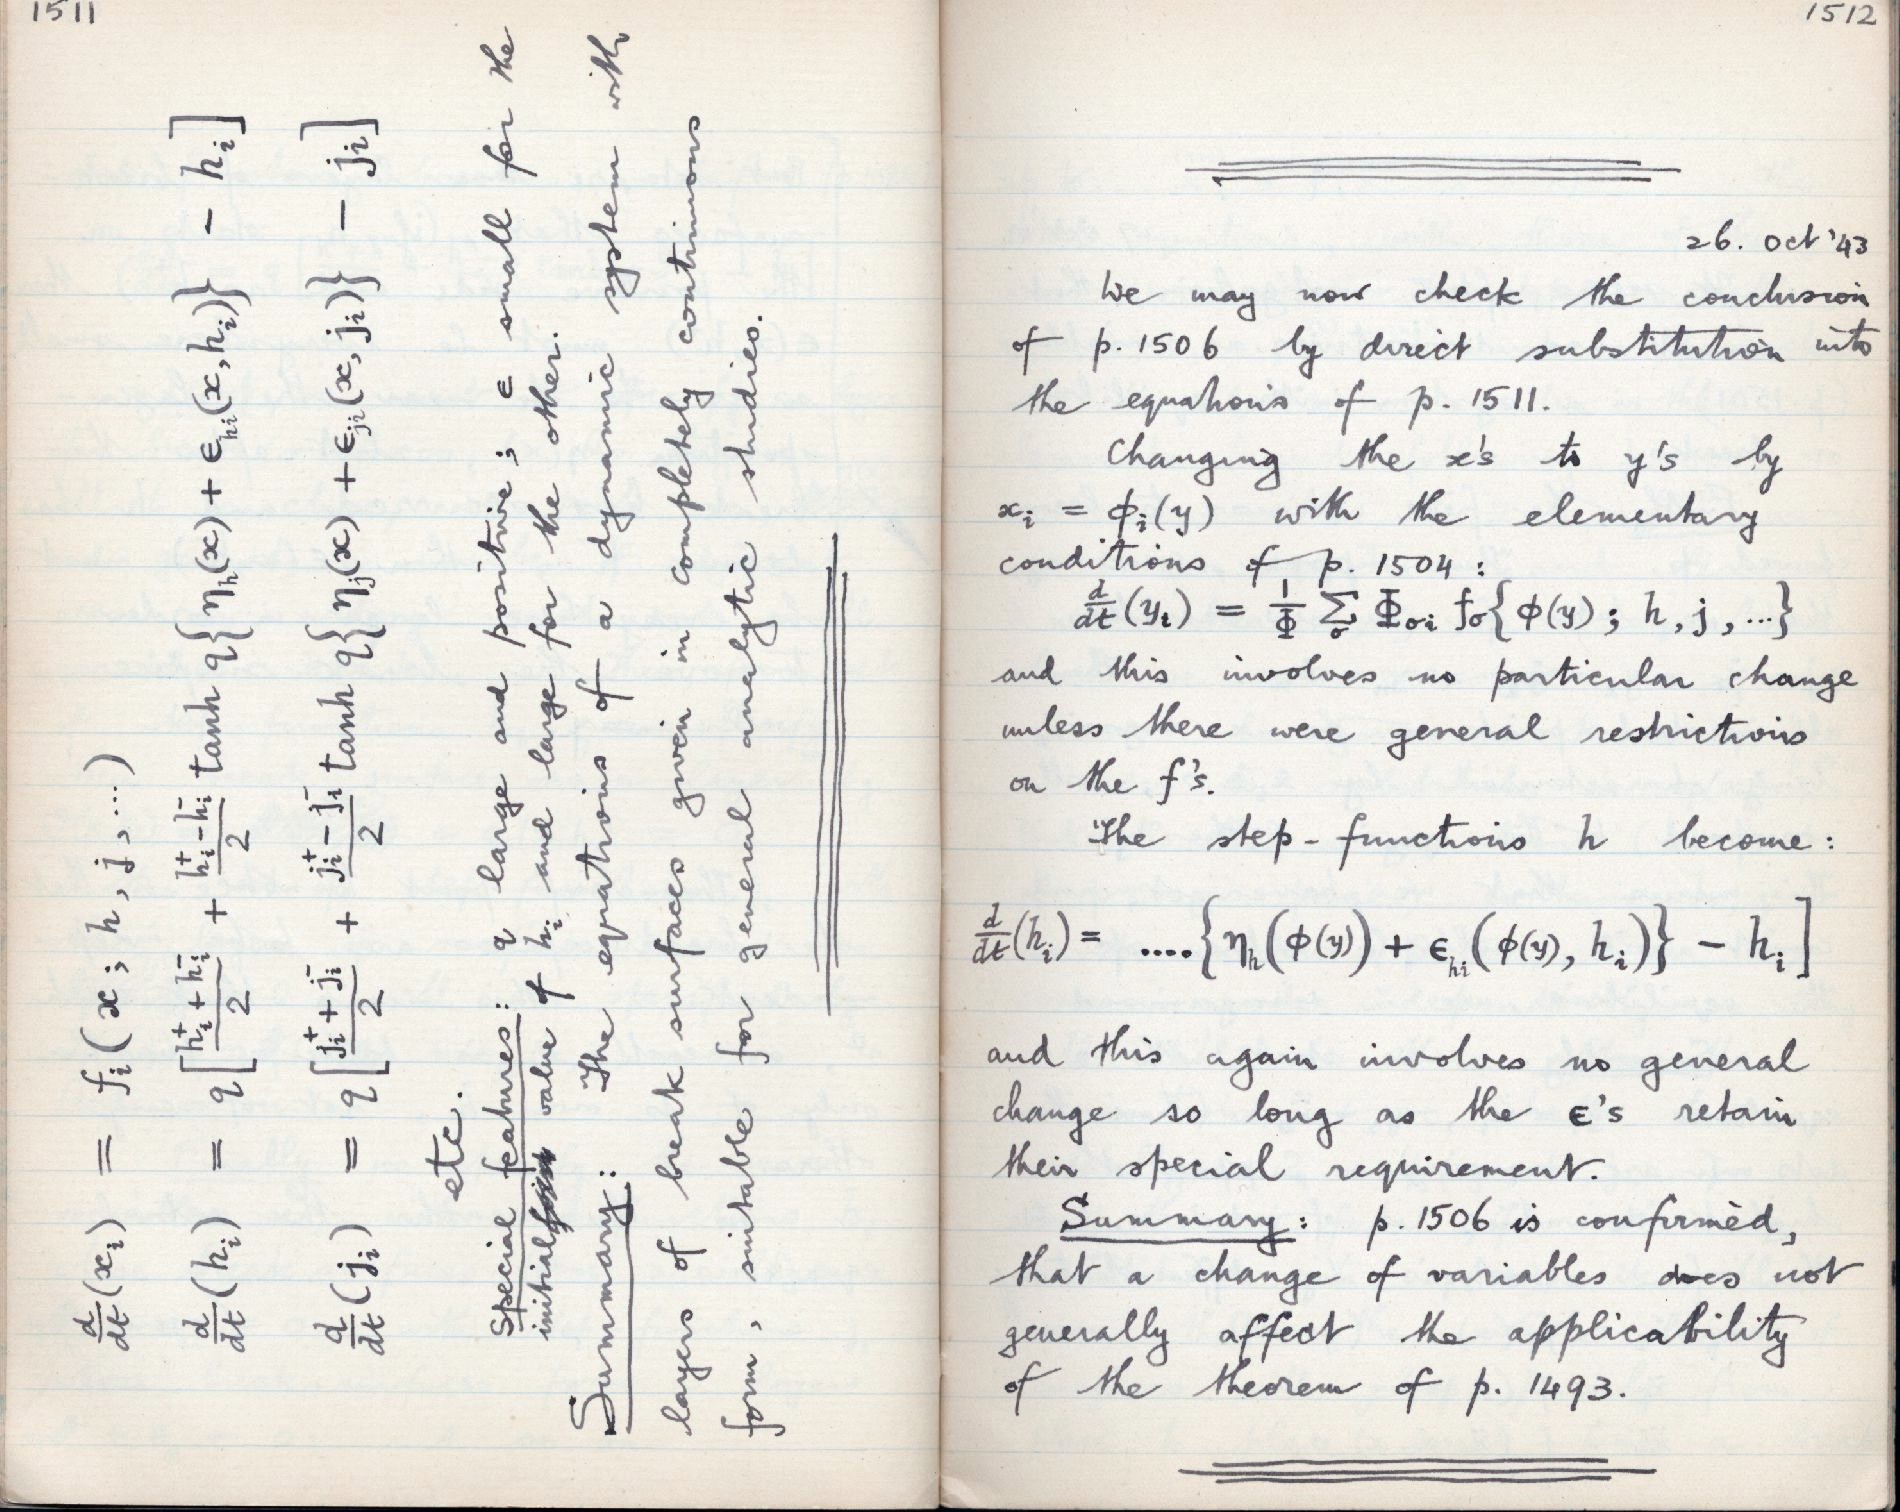 1511
d/dt (xᵢ) = fᵢ(x; h, j, ...)
d/dt (hᵢ) = q[(hᵢ⁺ + hᵢ⁻)/2 + (hᵢ⁺ - hᵢ⁻)/2 tanh q{{ηₕ(x) + ϵₕᵢ(x, hᵢ)}} - hᵢ]
d/dt (jᵢ) = q[(jᵢ⁺ + jᵢ⁻)/2 + (jᵢ⁺ - jᵢ⁻)/2 tanh q{{ηⱼ(x) + ϵⱼᵢ(x, jᵢ)}} - jᵢ]
etc.
Special features: q large and positive; ϵ small for the
initial value of hᵢ and large for the other.
Summary: The equations of a dynamic system with
layers of break surfaces given in completely continuous
form, suitable for general analytic studies.
1512
26. Oct '43
We may now check the conclusion
of p. 1506 by direct substitution into
the equations of p. 1511.
Changing the x's to y's by
xᵢ = ϕᵢ(y) with the elementary
conditions of p. 1504:
d/dt (yᵢ) = 1/Φ Σσ Φσᵢ fσ{ϕ(y); h, j, ...}
and this involves no particular change
unless there were general restrictions
on the f's.
The step-functions h become:
d/dt (hᵢ) = ....{ηₕ(ϕ(y)) + ϵₕᵢ(ϕ(y), hᵢ)} - hᵢ]
and this again involves no general
change so long as the ϵ's retain
their special requirement.
Summary: p. 1506 is confirmed,
that a change of variables does not
generally affect the applicability
of the theorem of p. 1493.